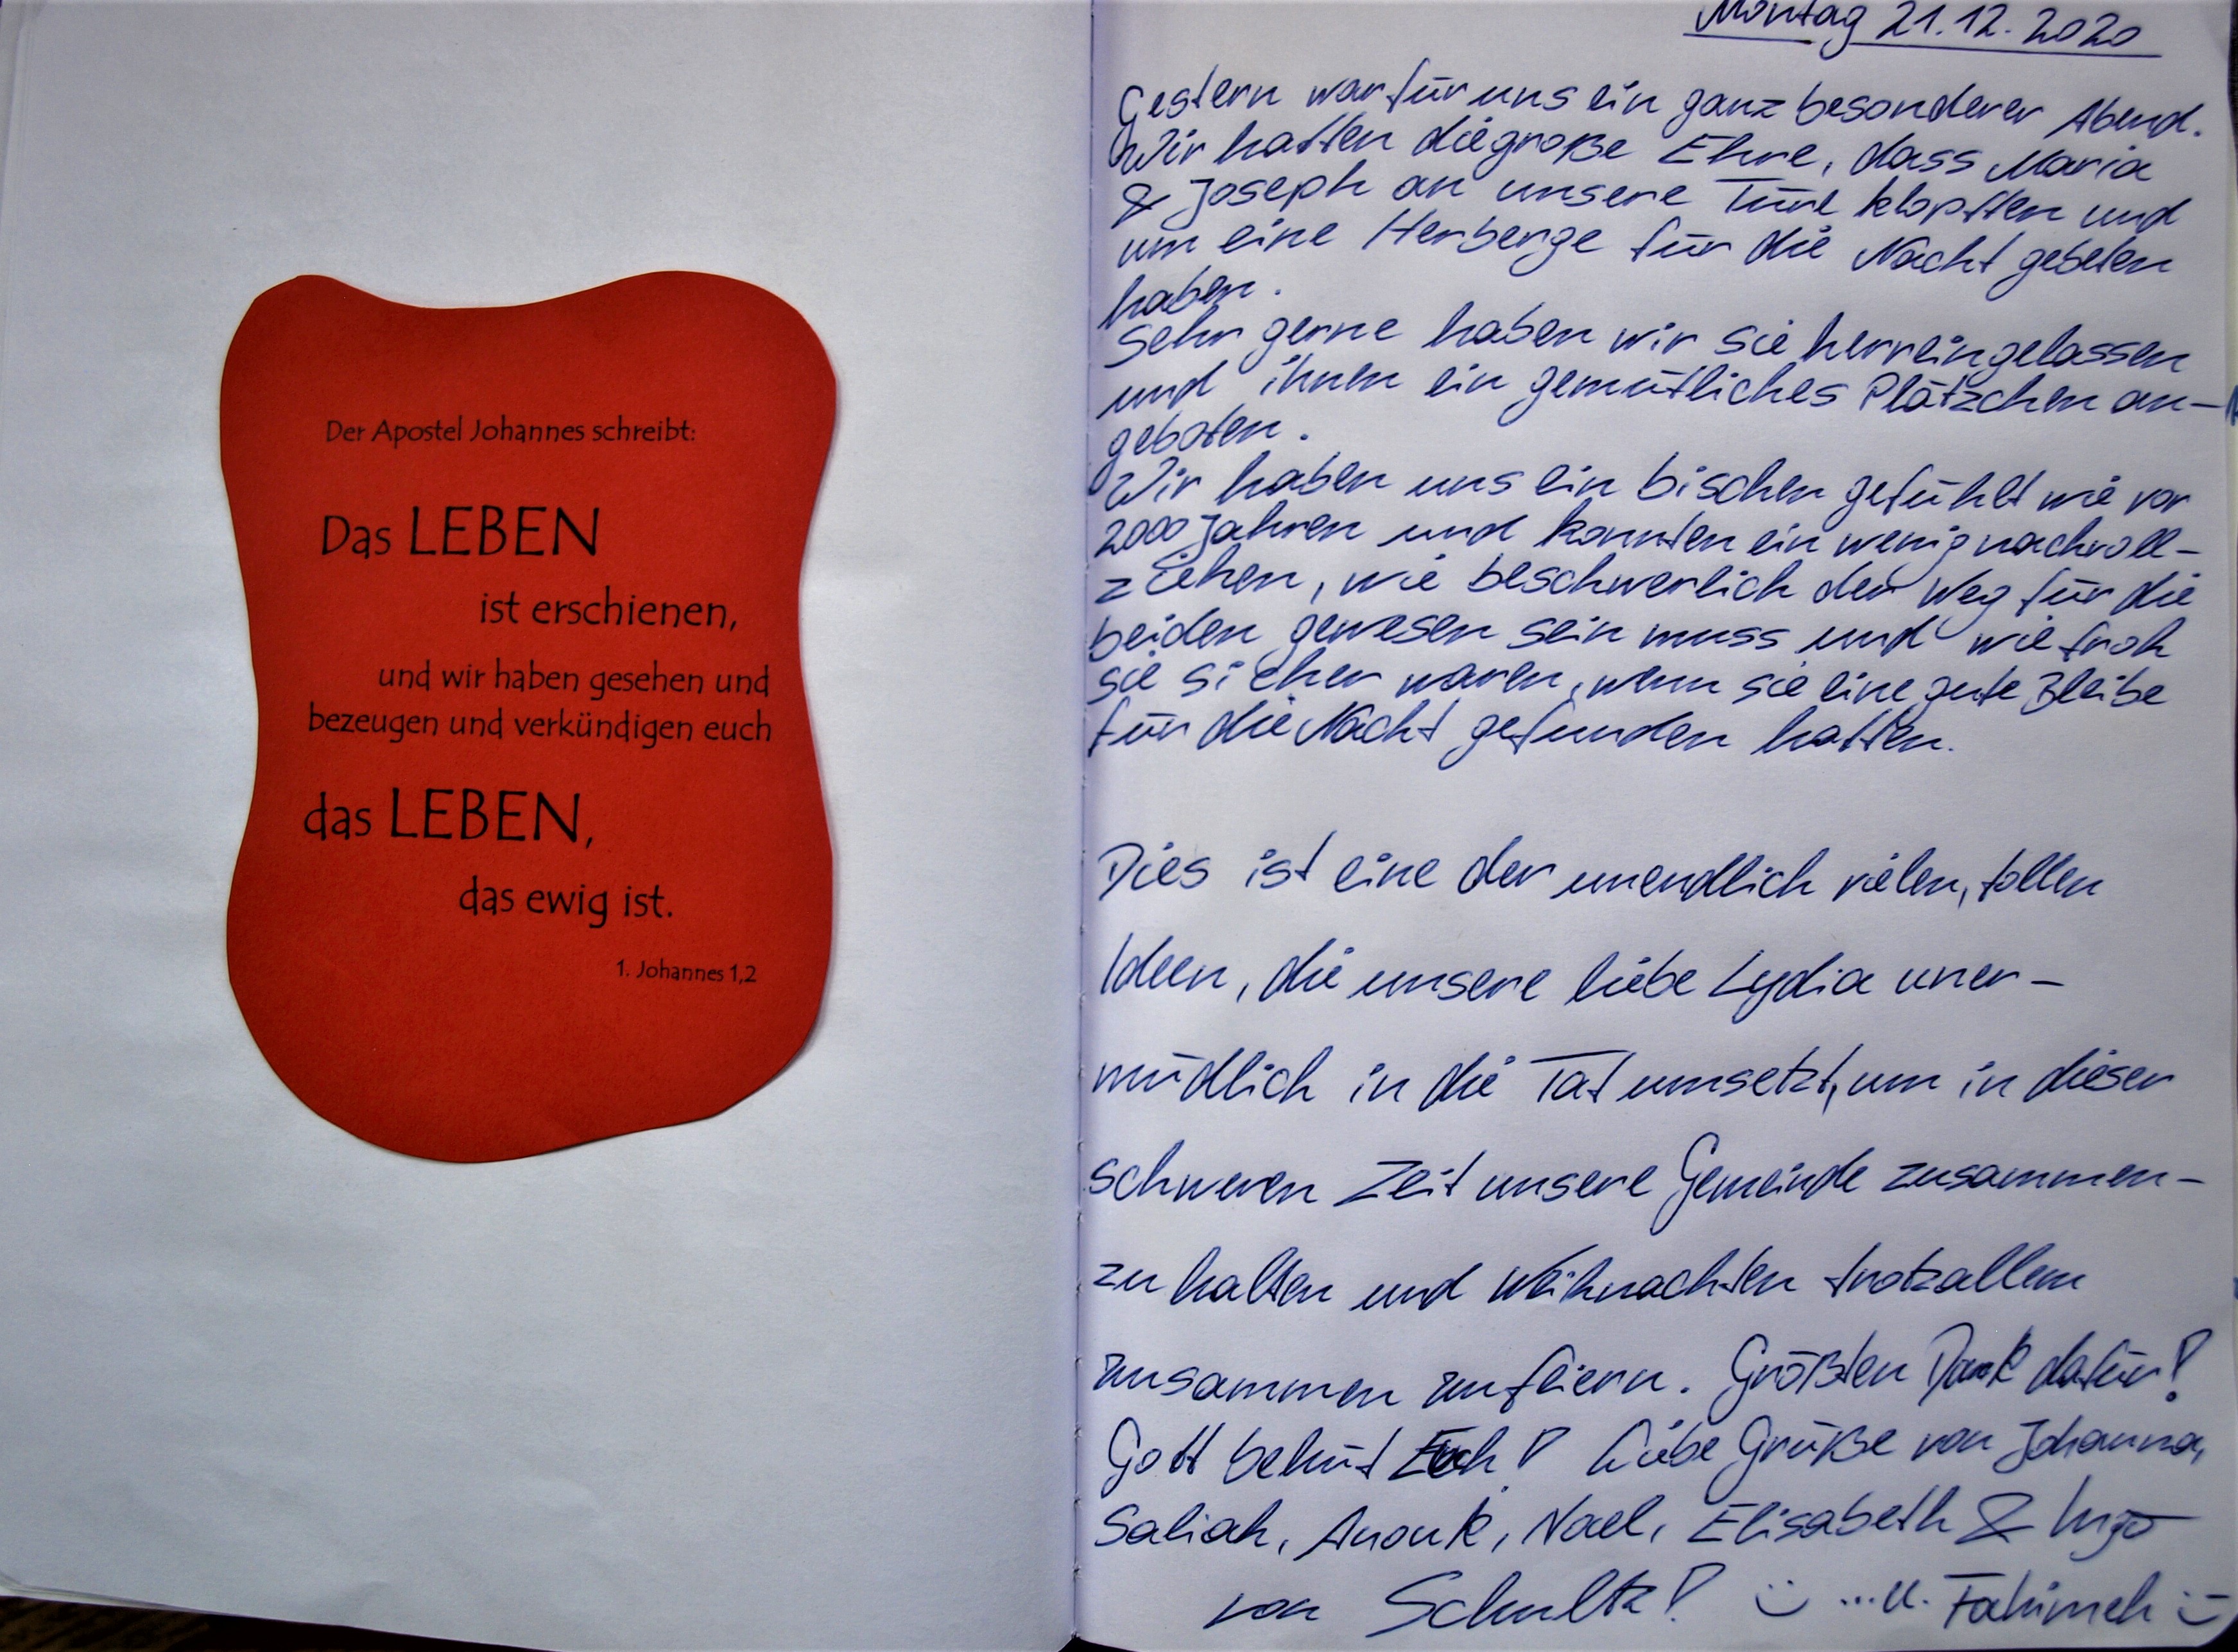 Der Apostel Johannes schreibt:
Das LEBEN
ist erschienen,
und wir haben gesehen und
bezeugen und verkündigen euch
das LEBEN,
das ewig ist.
1. Johannes 1,2
Montag 21.12.2020
Gestern war für uns ein ganz besonderer Abend.
Wir hatten die große Ehre, dass Maria
& Joseph an unsere Türe klopften und
um eine Herberge für die Nacht gebeten
haben.
Sehr gerne haben wir sie herreingelassen
und ihnen ein gemütliches Plätzchen an-
geboten.
Wir haben uns ein bischen gefühlt wie vor
2000 Jahren und konnten ein wenig nachvoll-
ziehen, wie beschwerlich der Weg für die
beiden gewesen sein muss und wie froh
sie sicher waren, wenn sie eine gute Bleibe
für die Nacht gefunden hatten.
Dies ist eine der unendlich vielen, tollen
Ideen, die unsere liebe Lydia uner-
müdlich in die Tat umsetzt, um in dieser
schweren Zeit unsere Gemeinde zusammen-
zu halten und Weihnachten trotzallem
zusammen zu feiern. Größten Dank dafür!
Gott behüt Euch! Liebe Grüße von Johanna,
Saliah, Anouk, Nael, Elisabeth & Ingo
von Schultz! :) ...u. Fahimeh :)